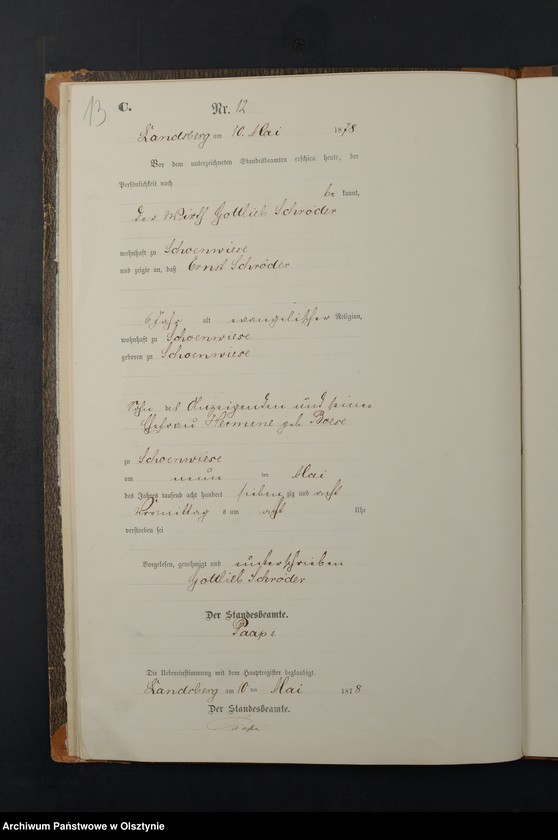 13
C.
Nr. 12
Landsberg am 10. Mai 1878
Vor dem unterzeichneten Standesbeamten erschien heute, der
Persönlichkeit nach
be kannt,
der Wirth Gottlieb Schröder
wohnhaft zu Schoenwiese
und zeigte an, daß Ernst Schröder
6 Jahr alt evangelischer Religion,
wohnhaft zu Schoenwiese
geboren zu Schoenwiese
Sohn des Anzeigenden und seiner
Ehefrau Hermine geb. Boese
zu Schoenwiese
am neun ten Mai
des Jahres tausend acht hundert sieben zig und acht
Vormittag s um acht Uhr
verstorben sei
Vorgelesen, genehmigt und unterschrieben
Gottlieb Schröder
Der Standesbeamte.
Paape
Die Uebereinstimmung mit dem Hauptregister beglaubigt.
Landsberg am 10 ten Mai 1878
Der Standesbeamte.
Archiwum Państwowe w Olsztynie